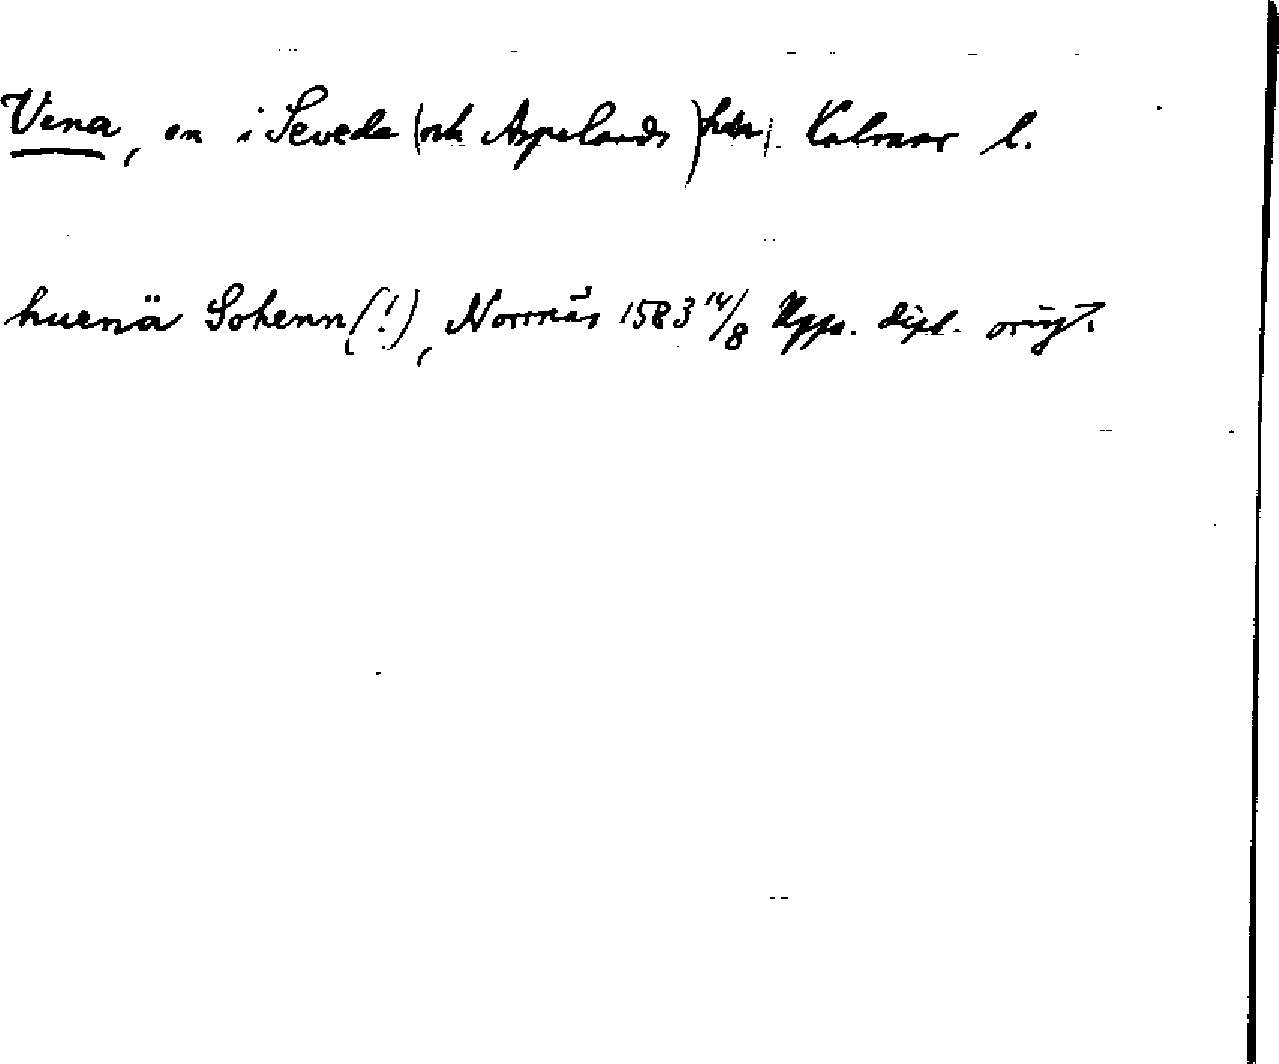 Vena, sn i Sevede (och Aspelands) hdr, Kalmar l.
huenä Sokenn (!), Norrnäs 1583 14/8 Upps. dipl. orig.